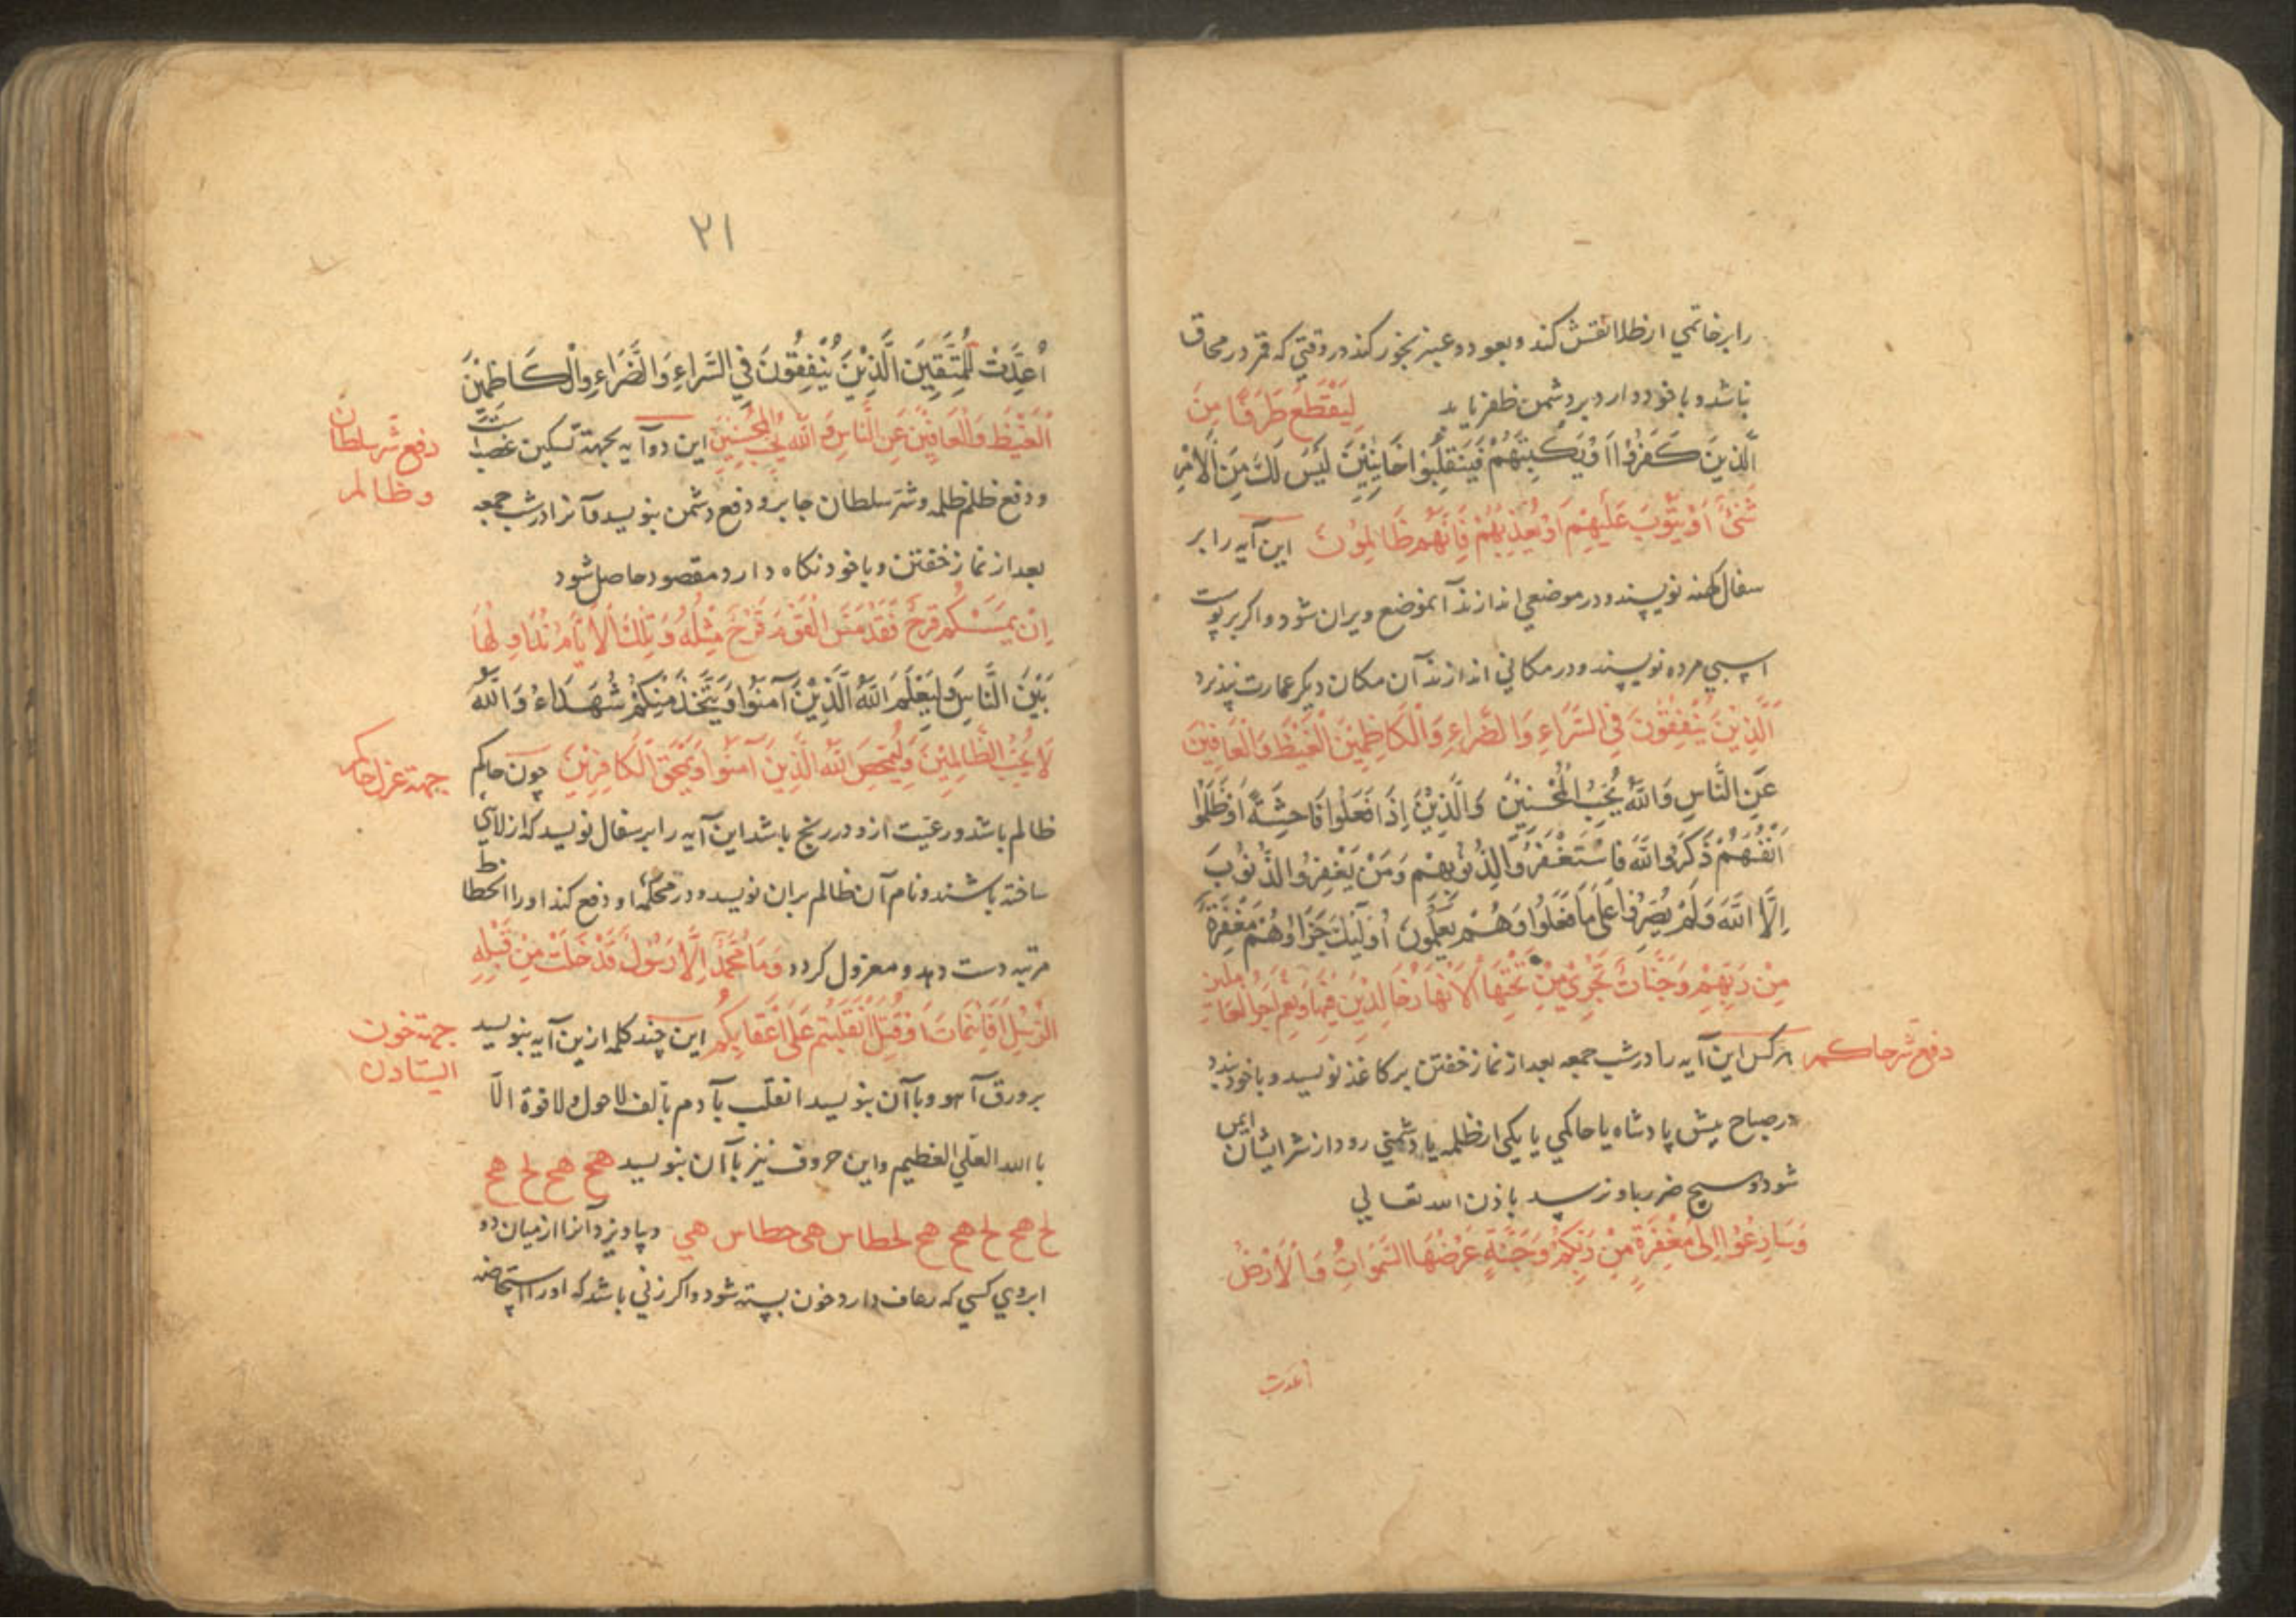 را بر خاتمی از طلا نقش کند و بعود و عنبر بخور کند در وقتی که قمر در محاق
باشد و با خود دارد بر دشمن ظفر یابد لِيَقْطَعَ طَرَفًا مِنَ
الَّذِينَ كَفَرُوا أَوْ يَكْبِتَهُمْ فَيَنْقَلِبُوا خَائِبِينَ لَيْسَ لَكَ مِنَ الْأَمْرِ
شَيْءٌ أَوْ يَتُوبَ عَلَيْهِمْ أَوْ يُعَذِّبَهُمْ فَإِنَّهُمْ ظَالِمُونَ این آیه را بر
سفال کهنه نویسند و در موضعی اندازند آنموضع ویران شود و اکر بر پوست
اسبی مرده نویسند و در مکانی اندازند آن مکان دیکر عمارت نپذیرد
الَّذِينَ يُنْفِقُونَ فِي السَّرَاءِ وَالضَّرَاءِ وَالْكَاظِمِينَ الْغَيْظَ وَالْعَافِينَ
عَنِ النَّاسِ وَاللَّهُ يُحِبُّ الْمُحْسِنِينَ وَالَّذِينَ إِذَا فَعَلُوا فَاحِشَةً أَوْ ظَلَمُوا
أَنْفُسَهُمْ ذَكَرُوا اللَّهَ فَاسْتَغْفَرُوا لِذُنُوبِهِمْ وَمَنْ يَغْفِرُ الذُّنُوبَ
إِلَّا اللَّهَ وَلَمْ يُصِرُّوا عَلَى مَا فَعَلُوا وَهُمْ يَعْلَمُونَ أُولَئِكَ جَزَاؤُهُمْ مَغْفِرَةٌ
مِنْ رَبِّهِمْ وَجَنَّاتٌ تَجْرِي مِنْ تَحْتِهَا الْأَنْهَارُ خَالِدِينَ فِيهَا وَنِعْمَ أَجْرُ الْعَامِلِينَ
دفع شر حاکم
هرکس این آیه را در شب جمعه بعد از نماز خفتن بر کاغذ نویسد و با خود بندد
در صباح پیش پادشاه یا حاکمی یا یکی از ظلمه یا دشمنی رود از شر ایشان ایمن
شود و هیچ ضرر باو نرسد باذن الله تعالی
وَسَارِعُوا إِلَى مَغْفِرَةٍ مِنْ رَبِّكُمْ وَجَنَّةٍ عَرْضُهَا السَّمَوَاتُ وَالْأَرْضُ
أعدت
٢١
أُعِدَّتْ لِلْمُتَّقِينَ الَّذِينَ يُنْفِقُونَ فِي السَّرَاءِ وَالضَّرَاءِ وَالْكَاظِمِينَ
الْغَيْظَ وَالْعَافِينَ عَنِ النَّاسِ وَاللَّهُ يُحِبُّ الْمُحْسِنِينَ این دو آیه بجهة تسکین غضب
دفع شر سلطان
و ظالم
و دفع ظلم ظلمه و شر سلطان جابر و دفع دشمن بنویسد و آنرا در شب جمعه
بعد از نماز خفتن و با خود نکاه دارد مقصود حاصل شود
إِنْ يَمْسَسْكُمْ قَرْحٌ فَقَدْ مَسَّ الْقَوْمَ قَرْحٌ مِثْلُهُ وَتِلْكَ الْأَيَّامُ نُدَاوِلُهَا
بَيْنَ النَّاسِ وَلِيَعْلَمَ اللَّهُ الَّذِينَ آمَنُوا وَيَتَّخِذَ مِنْكُمْ شُهَدَاءَ وَاللَّهُ
لَا يُحِبُّ الظَّالِمِينَ وَلِيُمَحِّصَ اللَّهُ الَّذِينَ آمَنُوا وَيَمْحَقَ الْكَافِرِينَ چون حاکم
جهة عزل حاکم
ظالم باشد و رعیت ازو در رنج باشد این آیه را بر سفال نویسد که از لای
ساخته باشند و نام آن ظالم بران نویسد و در محکمه او دفع کند او را انحطاط
مرتبه دست دهد و معزول کردد وَمَا مُحَمَّدٌ إِلَّا رَسُولٌ قَدْ خَلَتْ مِنْ قَبْلِهِ
الرُّسُلُ أَفَإِنْ مَاتَ أَوْ قُتِلَ انْقَلَبْتُمْ عَلَى أَعْقَابِكُمْ این چند کلمه ازین آیه بنویسد
جهة خون
ایستادن
بر ورق آهو و باآن بنویسد انقلب یا دم بالف لا حول ولا قوة الا
باالله العلی العظیم و این حروف نیز باآن بنویسد هج هج لح هج
لح هج لح هج هج لحطاس هی حطاس هی و بیاویزد آنرا از میان دو
ابروی کسی که رعاف دارد خون بسته شود و اکر زنی باشد که او را استحاضه